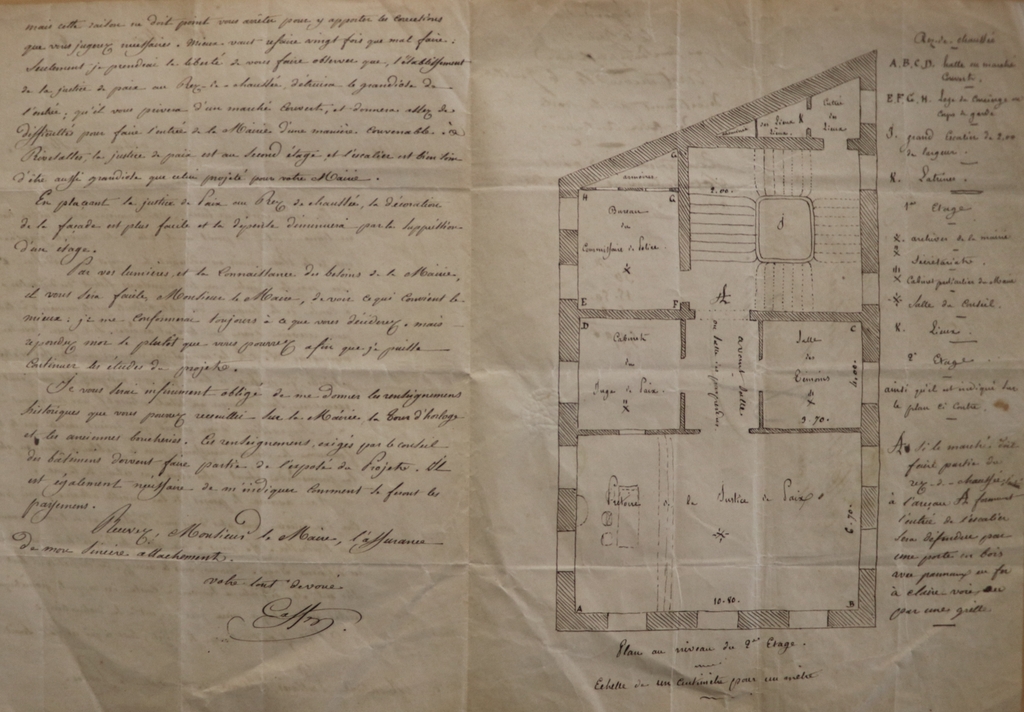 mais cette raison ne doit point vous arrêter pour y apporter les corrections
que vous jugerez nécessaires. Mieux vaut refaire vingt fois que mal faire.
Seulement je prendrai la liberté de vous faire observer que, l'établissement
de la justice de paix au Rez-de-chaussée, détruira le grandiose de
l'entrée, qu'il vous privera d'un marché couvert, et donnera assez de
difficultés pour faire l'entrée de la Mairie d'une manière convenable. à
Rivesaltes, la justice de paix est au second étage et l'escalier est bien loin
d'être aussi grandiose que celui projeté pour votre Mairie.
En plaçant la justice de Paix au Rez de chaussée, la décoration
de la façade est plus facile et la dépense diminuera par la suppression
d'un étage.
Par vos lumières, et la connaissance des besoins de la Mairie,
il vous sera facile, Monsieur le Maire, de voir ce qui convient le
mieux. je me conformerai toujours à ce que vous déciderez. mais
répondez moi le plutôt que vous pourrez afin que je puisse
continuer les études du projet.
Je vous serai infiniment obligé de me donner les renseignemens
historiques que vous pourrez recueillir sur la Mairie, la Tour d'horloge
et les anciennes boucheries. Ces renseignemens, exigés par le conseil
des bâtimens doivent faire partie de l'exposé du Projet. Il
est également nécessaire de m'indiquer comment se feront les
payemens.
Recevez, Monsieur le Maire, l'assurance
de mon sincère attachement.
votre tout dévoué
armoires
H
G
Bureau
du
Commissaire de Police
E
F
2.00.
J
K
D
Cabinet
du
Juge de Paix
avant salle
ou salle des pas perdus
C
Salle
des
Témoins
3.70.
4.00.
Prétoire
de
Justice de Paix
6.70.
10.80.
A
B
Plan au niveau du 2me Etage.
Echelle de un centimètre pour un mètre
Rez-de-chaussée
A. B. C. D. halle ou marché
couvert.
E. F. G. H. Loge du Concierge ou
Corps de garde
J. grand Escalier de 2.00
de largeur.
K. Latrines.
1er Etage
archives de la mairie
Secrétariat.
Cabinet particulier du Maire
Salle du Conseil.
K. Lieux.
2e Etage
ainsi qu'il est indiqué sur
le plan ci contre.
Si le marché doit
faire partie du
rez-de-chaussée,
à l'arceau formant
l'entrée de l'escalier
sera défendue par
une porte en bois
avec panneaux en fer
à claire voie ou
par une grille.